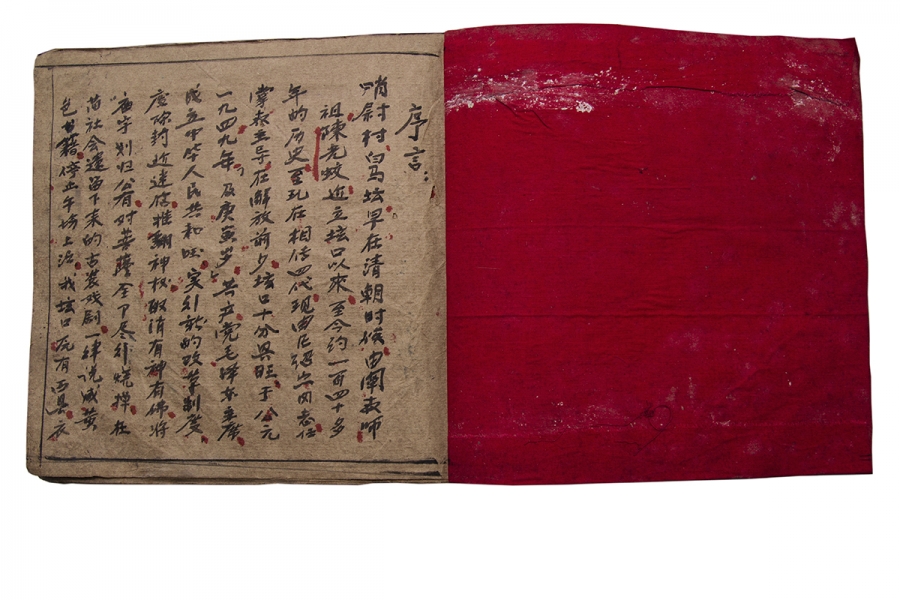 序言：
哨斜村白马坛早在清朝时候由阐教师
祖陳先蛟近立坛口以來至今约一百四十多
年的历史至现在相传四代现由 志任
掌教主导在解放前夕坛口十分兴旺于公元
一九四九年及庚寅岁共产党毛泽东主席
成立中华人民共和国实行新的改革制度
废除封近迷信推翻神权取消有神有佛将
庙宇划归公有对菩萨全部尽行烧埋在
苗社会遗留下来的古装戏剧一律说成黄
色书籍停止午场上演我坛口 有面具衣